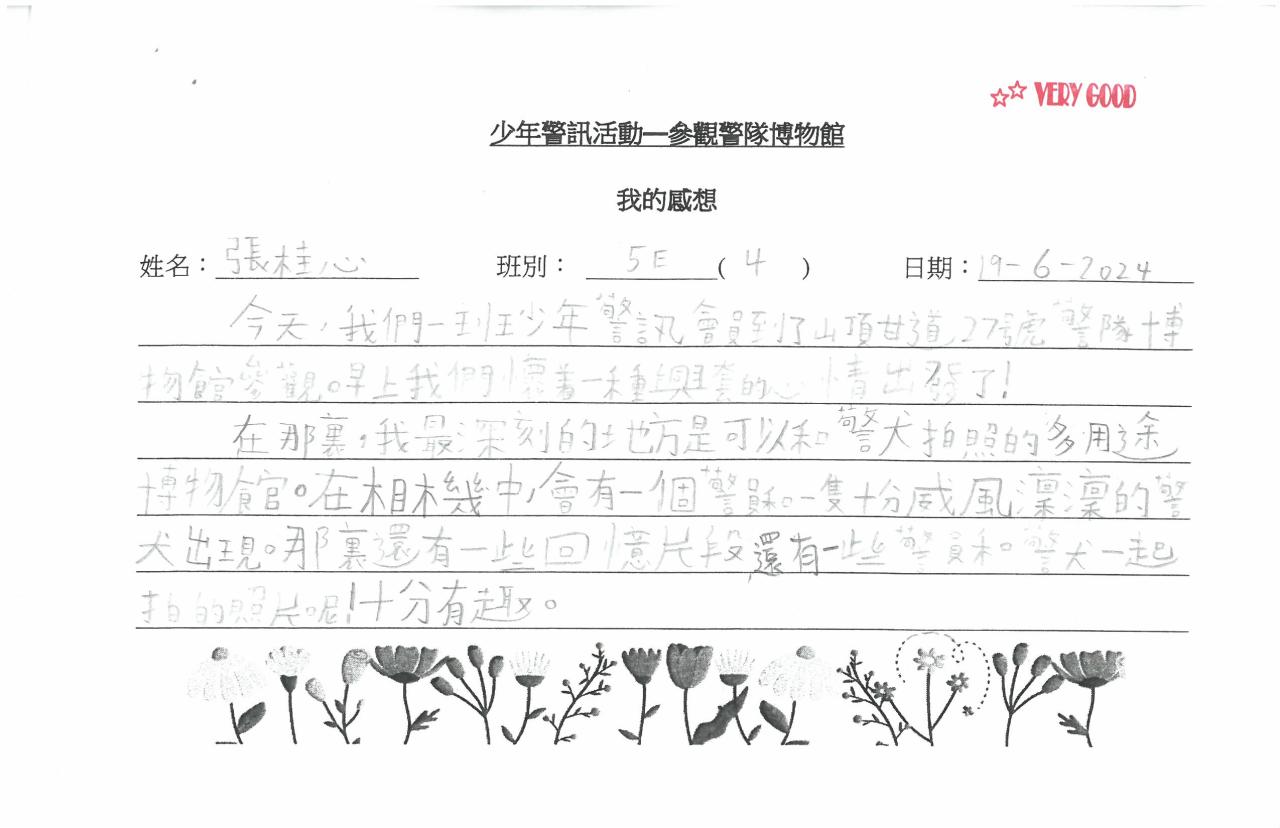 ☆☆ VERY GOOD
少年警訊活動—參觀警隊博物館
我的感想
姓名：張桂心 班別：5E ( 4 ) 日期：19-6-2024
今天，我們一班少年警訊會員到了山頂甘道27號警隊博
物館參觀。早上我們懷着一種興奮的心情出發了！
在那裏，我最深刻的地方是可以和警犬拍照的多用途
博物館。在相機中，會有一個警員和一隻十分威風凜凜的警
犬出現。那裏還有一些回憶片段，還有一些警員和警犬一起
拍的照片呢！十分有趣。